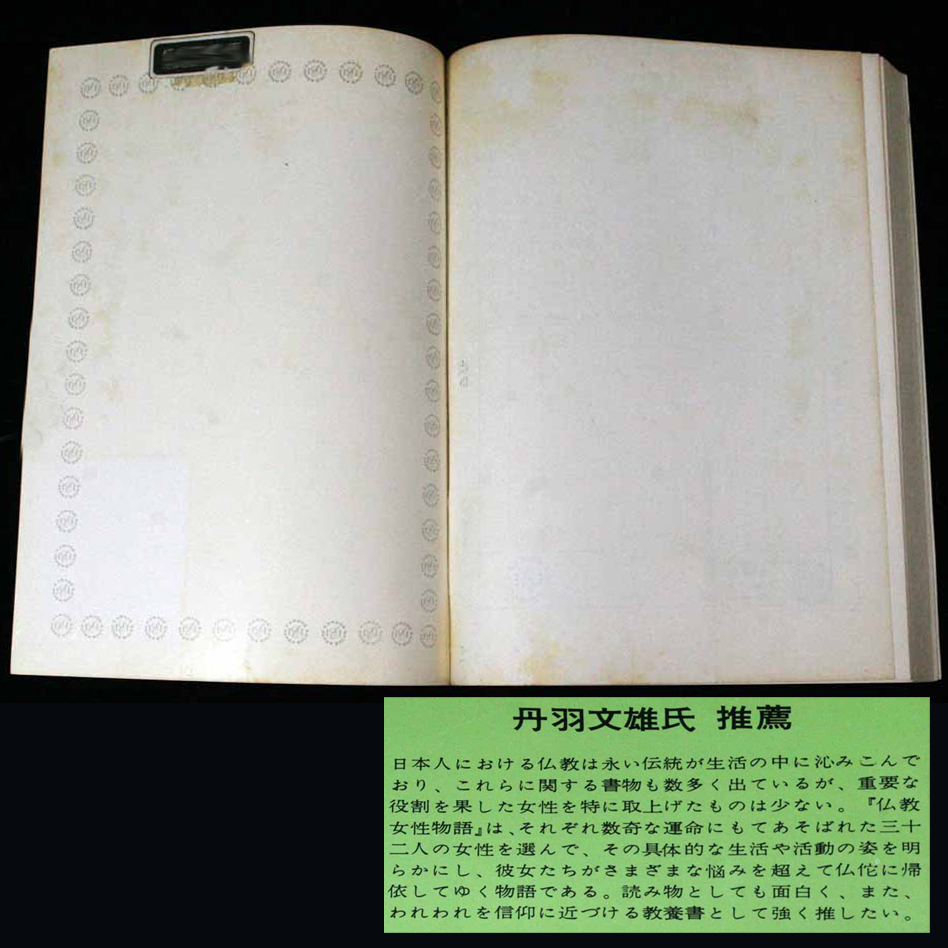 丹羽文雄氏 推薦
日本人における仏教は永い伝統が生活の中に沁みこんで
おり、これらに関する書物も数多く出ているが、重要な
役割を果した女性を特に取上げたものは少ない。『仏教
女性物語』は、それぞれ数奇な運命にもてあそばれた三十
二人の女性を選んで、その具体的な生活や活動の姿を明
らかにし、彼女たちがさまざまな悩みを超えて仏陀に帰
依してゆく物語である。読み物としても面白く、また、
われわれを信仰に近づける教養書として強く推したい。